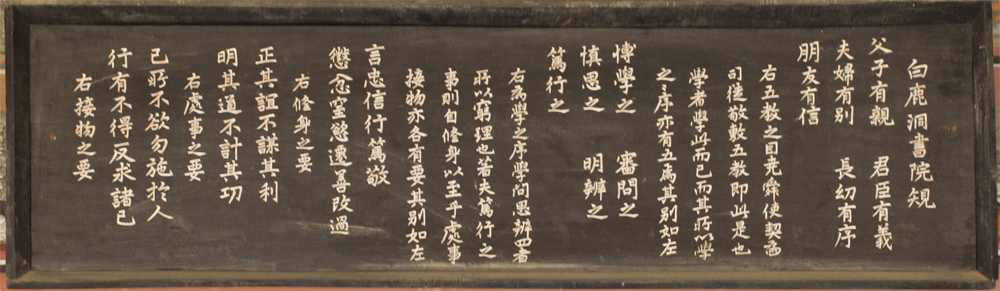 白鹿洞書院規
父子有親　君臣有義
夫婦有別　長幼有序
朋友有信
右五敎之目堯舜使契爲
司徒敬敷五敎即此是也
學者學此而已而其所以學
之之序亦有五焉其別如左
博學之　審問之
慎思之　明辨之
篤行之
右爲學之序學問思辨四者
所以窮理也若夫篤行之
事則自修身以至乎處事
接物亦各有要其別如左
言忠信行篤敬
懲忿窒慾遷善改過
右修身之要
正其誼不謀其利
明其道不計其功
右處事之要
己所不欲勿施於人
行有不得反求諸己
右接物之要